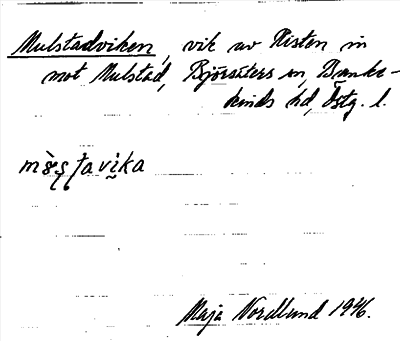 Mulstadviken, vik av Risten in
mot Mulstad, Björsäters sn, Banke-
kinds hd, Östg. l.
Maja Nordlund 1946.